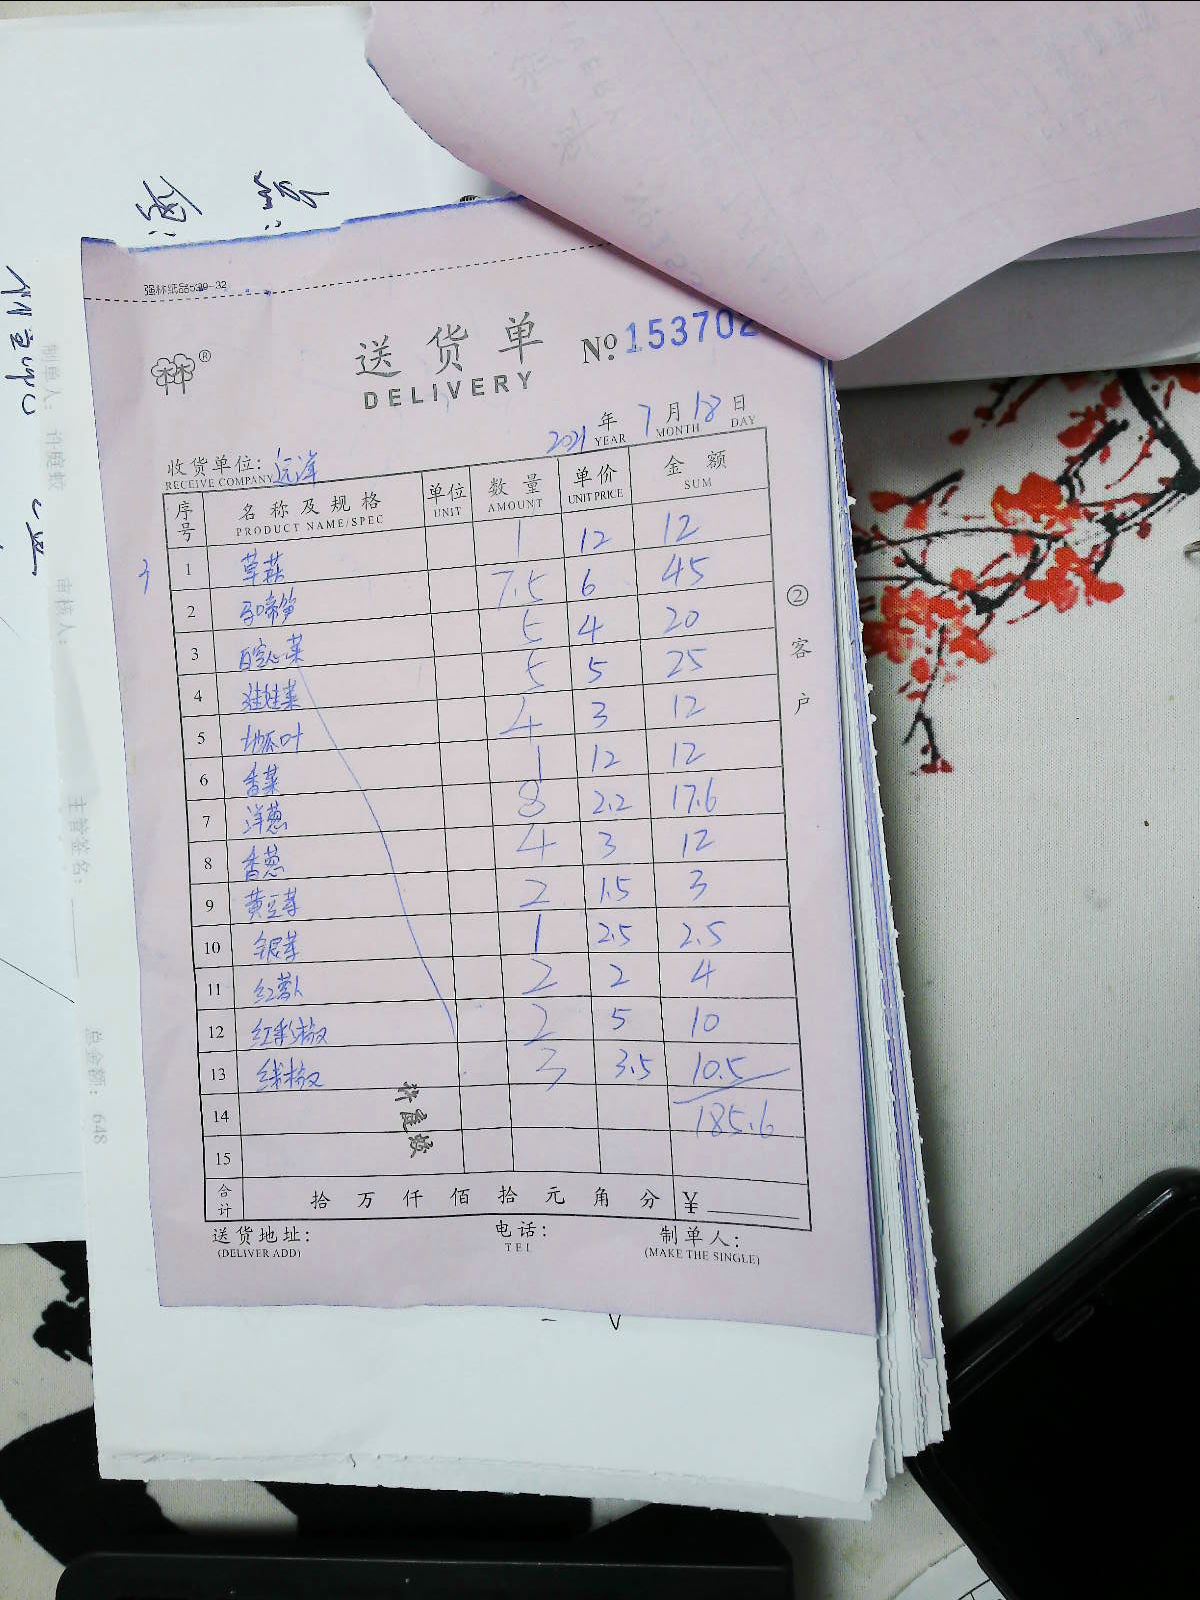 强林纸品539-32
送货单
DELIVERY
No 153702
2021 年 7 月 18 日
YEAR MONTH DAY
收货单位: 远洋
RECEIVE COMPANY
序号 名称及规格 单位 数量 单价 金额
PRODUCT NAME/SPEC UNIT AMOUNT UNIT PRICE SUM
1 草菇 1 12 12
2 马啼笋 7.5 6 45
3 空心菜 5 4 20
4 娃娃菜 5 5 25
5 地瓜叶 4 3 12
6 香菜 1 12 12
7 洋葱 8 2.2 17.6
8 香葱 4 3 12
9 黄豆芽 2 1.5 3
10 银芽 1 2.5 2.5
11 红萝卜 2 2 4
12 红彩椒 2 5 10
13 线椒 3 3.5 10.5
14 185.6
15
许庭姣
合计 拾 万 仟 佰 拾 元 角 分 ¥
送货地址: 电话: 制单人:
(DELIVER ADD) TEL (MAKE THE SINGLE)
② 客户
制单人:
审核人:
主管签名:
总金额: 648